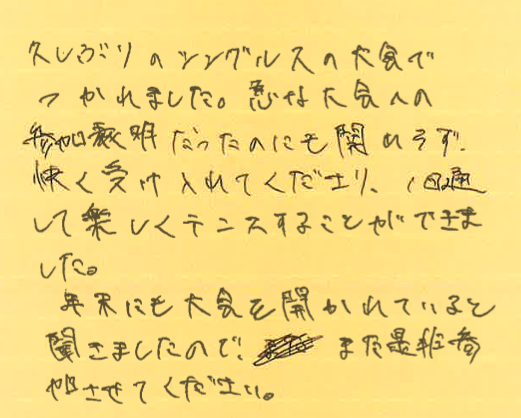 久しぶりのシングルスの大会で
つかれました。急な大会への
参加表明だったのにも関わらず、
快く受け入れてくださり、1日通
して楽しくテニスすることができま
した。
年末にも大会を開かれていると
聞きましたので、また是非参
加させてください。